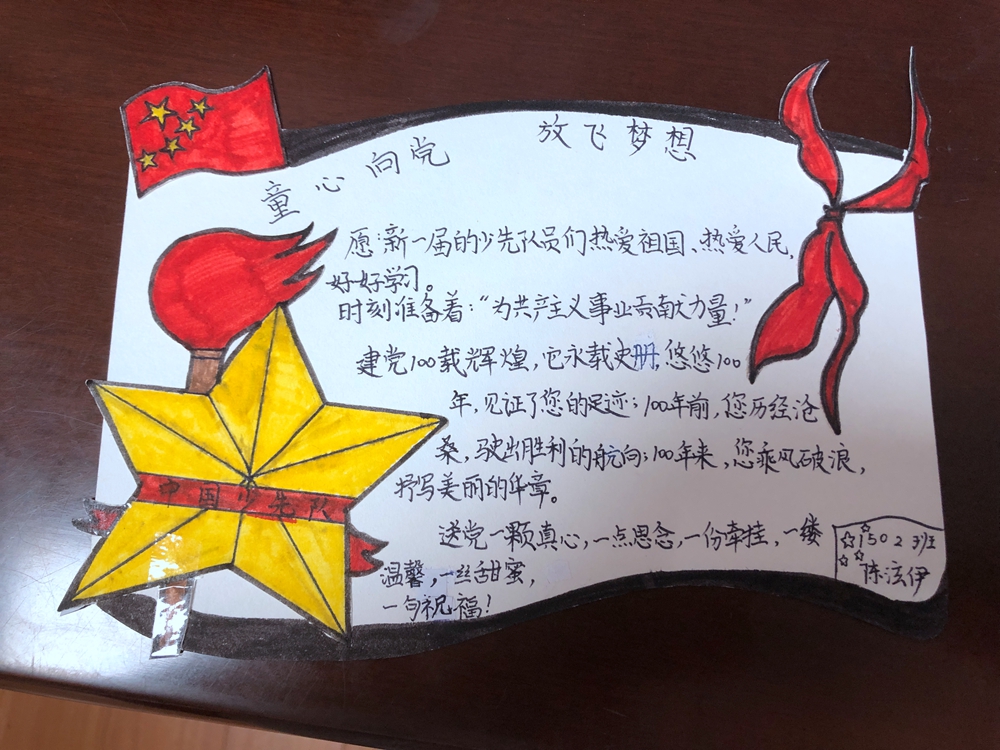 童心向党 放飞梦想
愿:新一届的少先队员们热爱祖国、热爱人民,
好好学习。
时刻准备着:“为共产主义事业贡献力量!”
建党100载辉煌,它永载史册,悠悠100
年,见证了您的足迹;100年前,您历经沧
桑,驶出胜利的航向;100年来,您乘风破浪,
抒写美丽的华章。
送党一颗真心,一点思念,一份牵挂,一缕
温馨,一丝甜蜜,
一句祝福!
中国少先队
1502班
陈泫伊